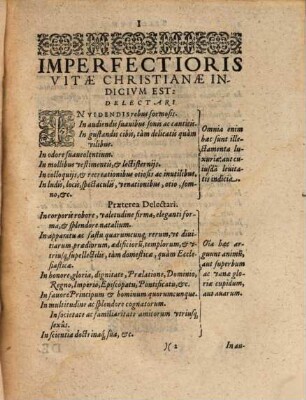 I
IMPERFECTIORIS
VITÆ CHRISTIANÆ IN-
DICIVM EST:
DELECTARI
IN VIDENDIS rebus formosis.
In audiendis suauibus sonis ac cantibus.
In gustandis cibis, tàm delicatis quàm
vilibus.
In odore suaueolentium.
In mollibus vestimentis, & lectisternijs.
In colloquijs, & recreationibus otiosis ac inutilibus.
In ludis, locis, spectaculis, venationibus, otio, som-
no, &c.
Omnia enim
hæc sunt ille-
ctamenta lu-
xuriæ, aut cu-
iusdã leuita-
tis indicia.
Præterea Delectari.
In corporis robore, valetudine firma, eleganti for-
ma, & splendore natalium.
In apparatu ac fastu quarumcunq; rerum, vt di-
uitiarum prædiorum, ædificiorũ, templorum, & v-
triusq; supellectilis, tàm domesticæ, quàm Eccle-
siasticæ.
In honore, gloria, dignitate, Prælatione, Dominio,
Regno, Imperio, Episcopatu, Pontificatu, &c.
In fauore Principum & hominum quorumcunque.
In multitudine ac splendore cognatorum.
In societate ac familiaritate amicorum vtriusq;
sexus.
In scientia doctrinaq; sua, &c.
Oia hæc ar-
guunt animũ,
aut superbum
ac vanæ glo-
riæ cupidum,
aut auarum.
)( 2
In au-